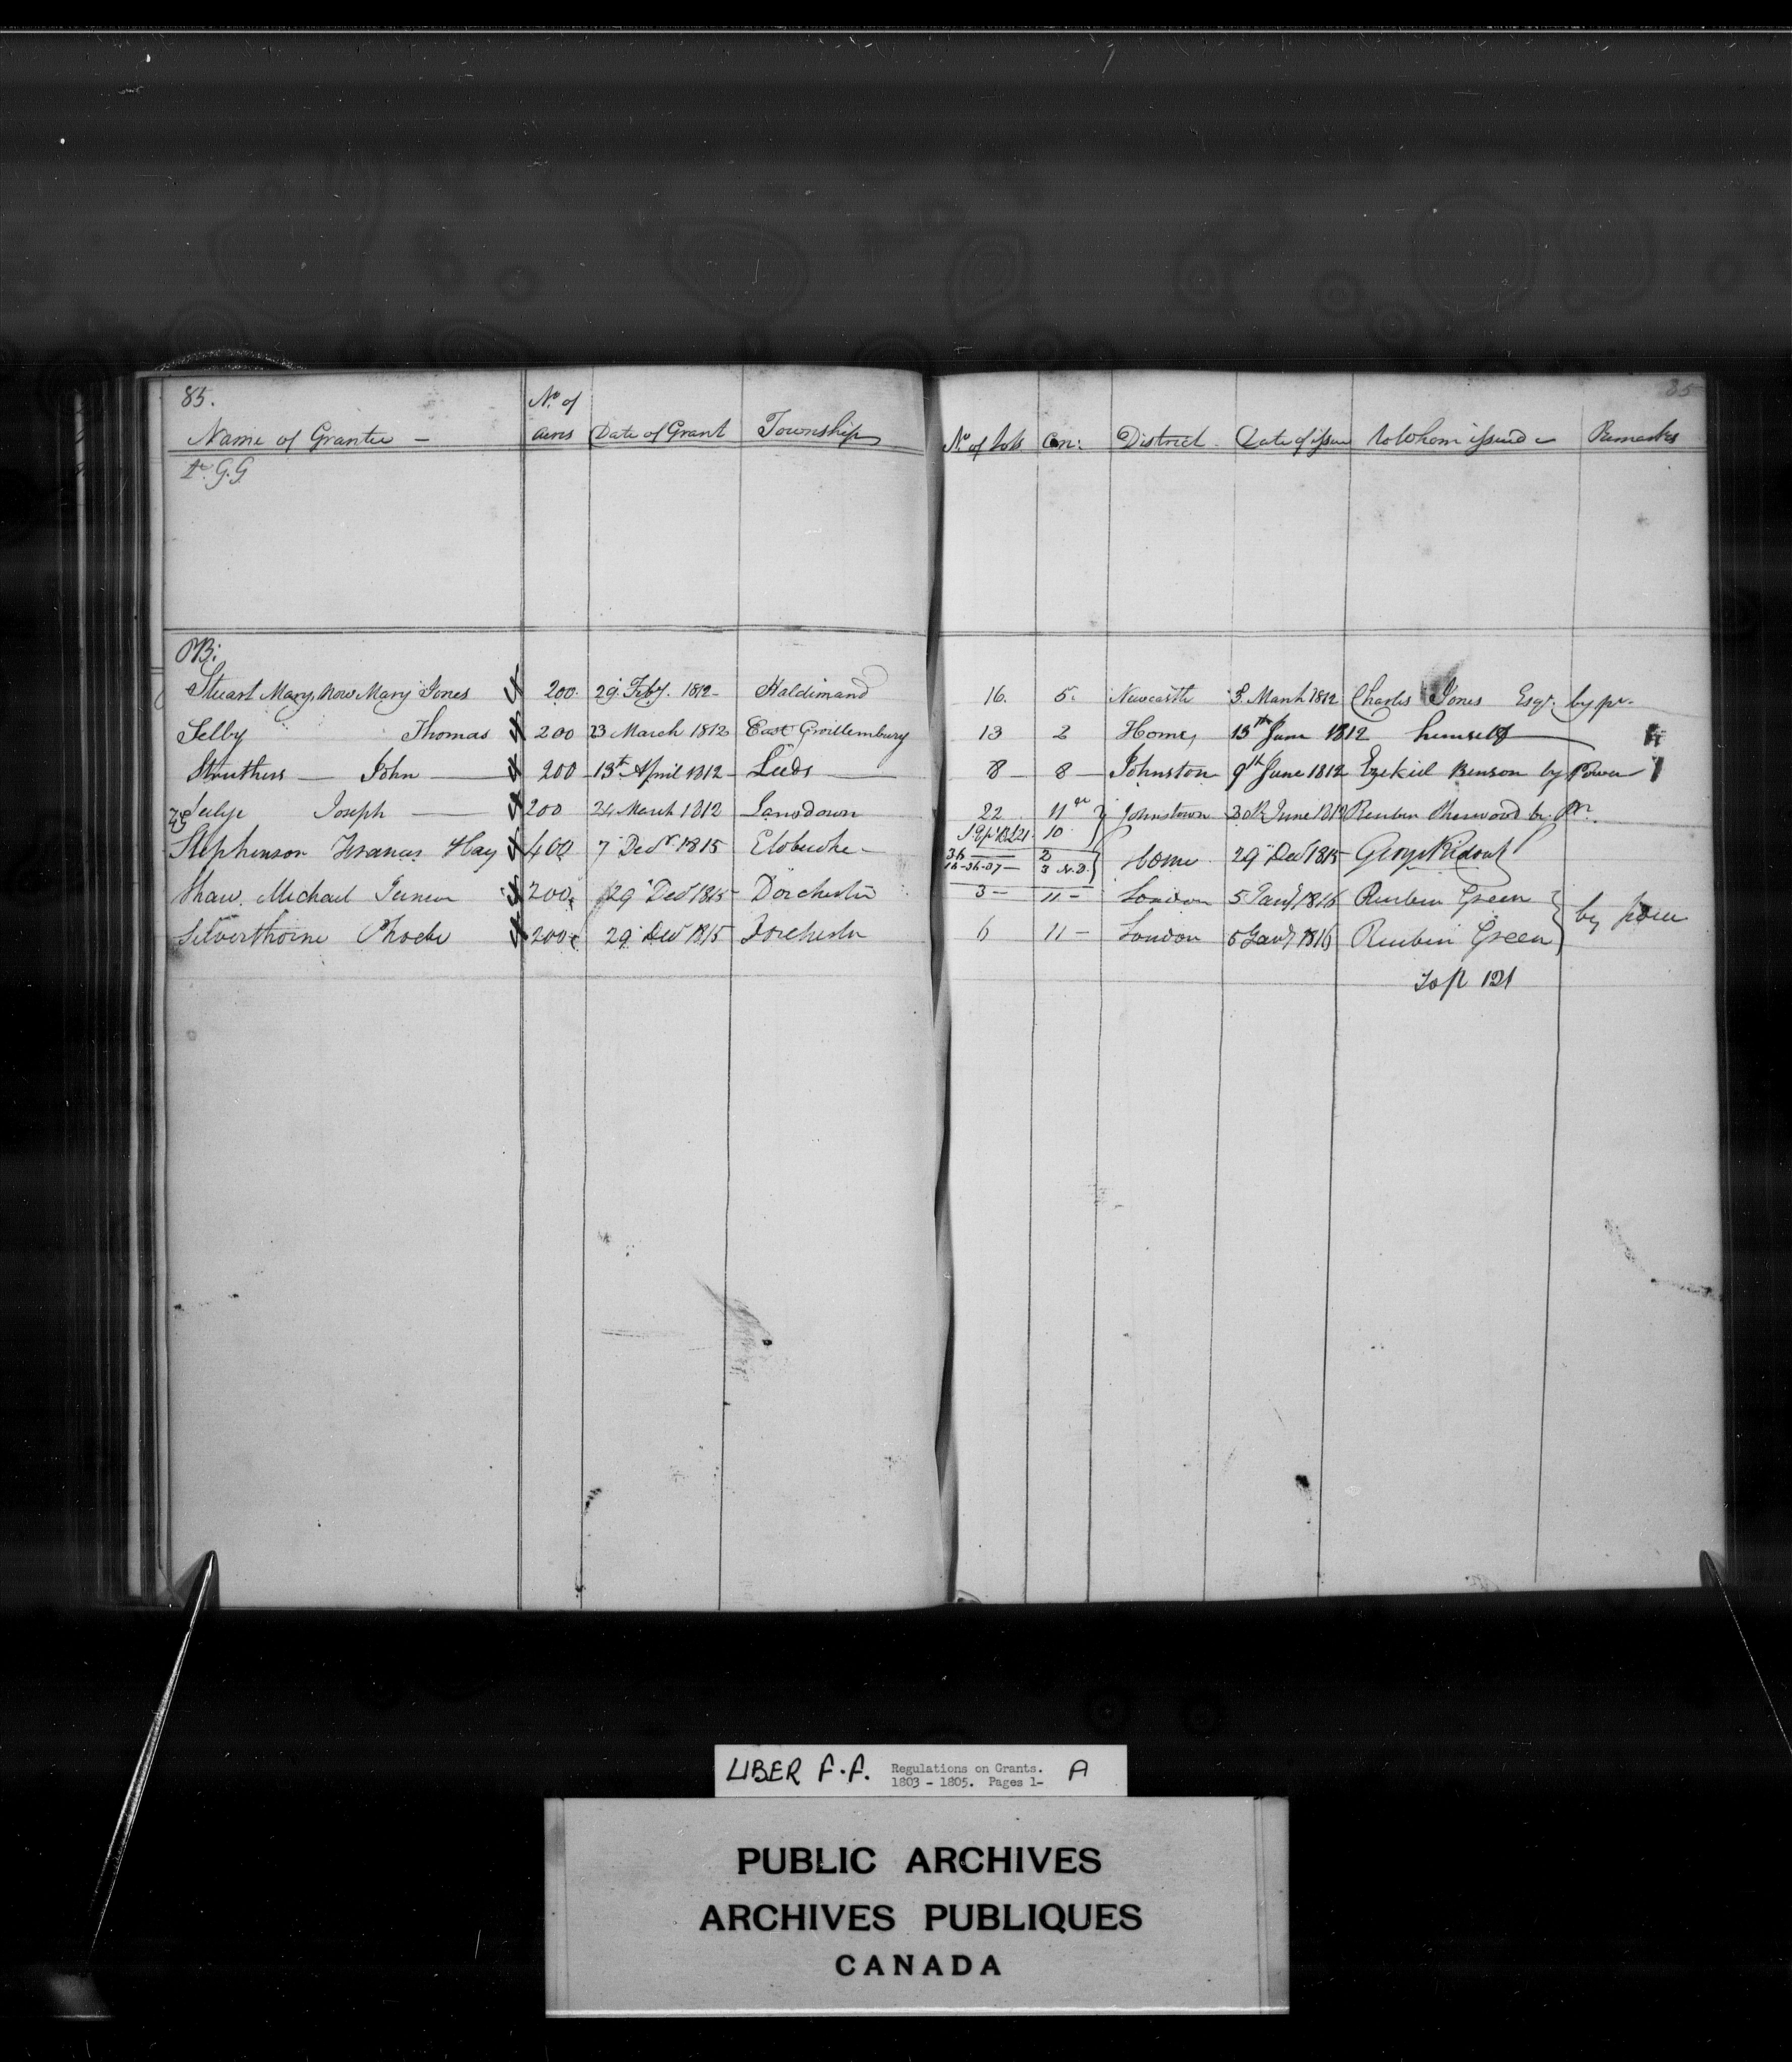 85.
85
Name of Grantee — | No. of acres | Date of Grant | Township | No. of Lots | Con: | District | Date of issue | to Whom issued — | Remarks
G.G
OB:
Stuart Mary, now Mary Jones | 200. | 29. Feby. 1812 - | Haldimand | 16. | 5. | Newcastle | 3. March 1812 | Charles Jones Esqr. by pr.
Selby Thomas | 200 | 23 March 1812 | East Gwillembury | 13 | 2 | Home, | 15th June 1812 | himself —
Struthers — John — | 200 | 13th April 1812 - | Leeds — | 8 — | 8 — | Johnston | 9th June 1812 | Ezekiel Benson by Power
Seelye Joseph — | 200 | 24 March 1812 | Lansdown | 22 | 11 | Johnstown | 30th June 1812 | Reuben Sherwood by Pr.
21 | 10
Stephenson Francis Hay | 400 | 7 Decr. 1815 | Etobicoke - | 36 — | 2 | Home | 29 Decr 1815 | George Ridout
16-36-37 — | 3 N.D.
Shaw. Michael Junior | 200 | 29 Decr 1815 | Dorchester | 3 — | 11 — | London | 5 Jany 1816 | Reuben Green | by power
Silverthorne Phoebe | 200 | 29 Decr 1815 | Dorchester | 6 | 11 — | London | 5 Jany 1816 | Reuben Green
To p 121
LIBER F.F. Regulations on Grants. A
1803 - 1805. Pages 1-
PUBLIC ARCHIVES
ARCHIVES PUBLIQUES
CANADA